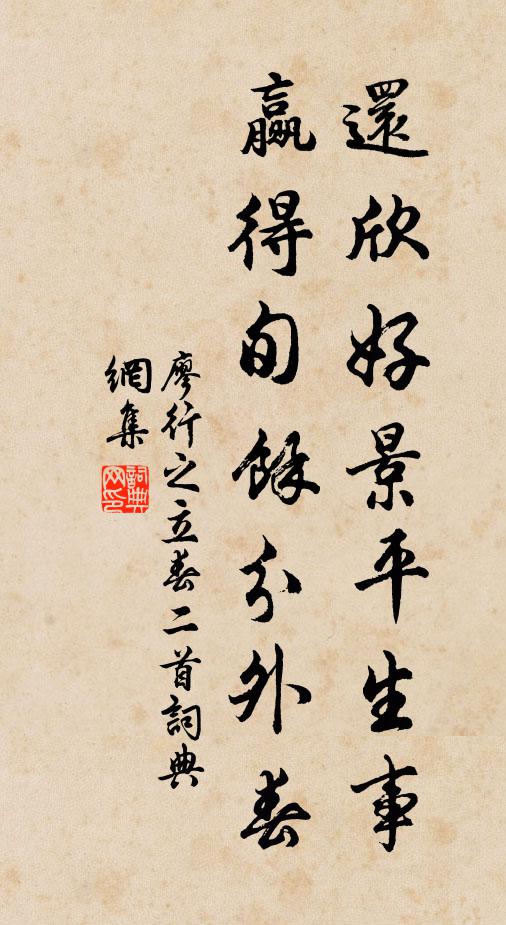 還欣好景平生事
贏得旬餘分外春
廖行之立春二首詞典
網集
詞典
网印